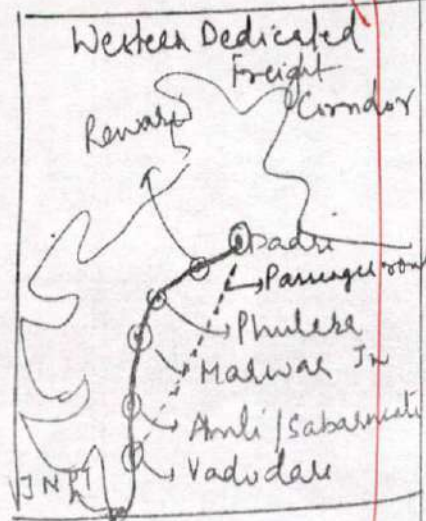 Western Dedicated
Freight
Corridor
Rewari
Dadri
Passenger rout
Phulera
Marwar Jn
Amli/Sabarmati
Vadodara
JNPT